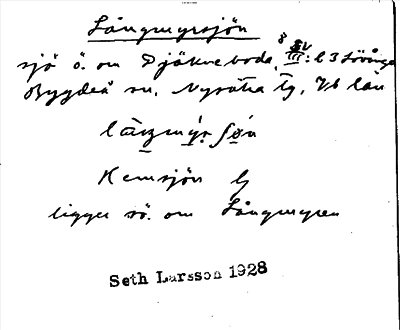 Långmyrsjön
sjö ö. om Djäkneboda, 8 SV III: b 3 Lövånge
Bygdeå sn. Nysätra tg, Vb län
Kemsjön
ligger sö. om Långmyren
Seth Larsson 1928